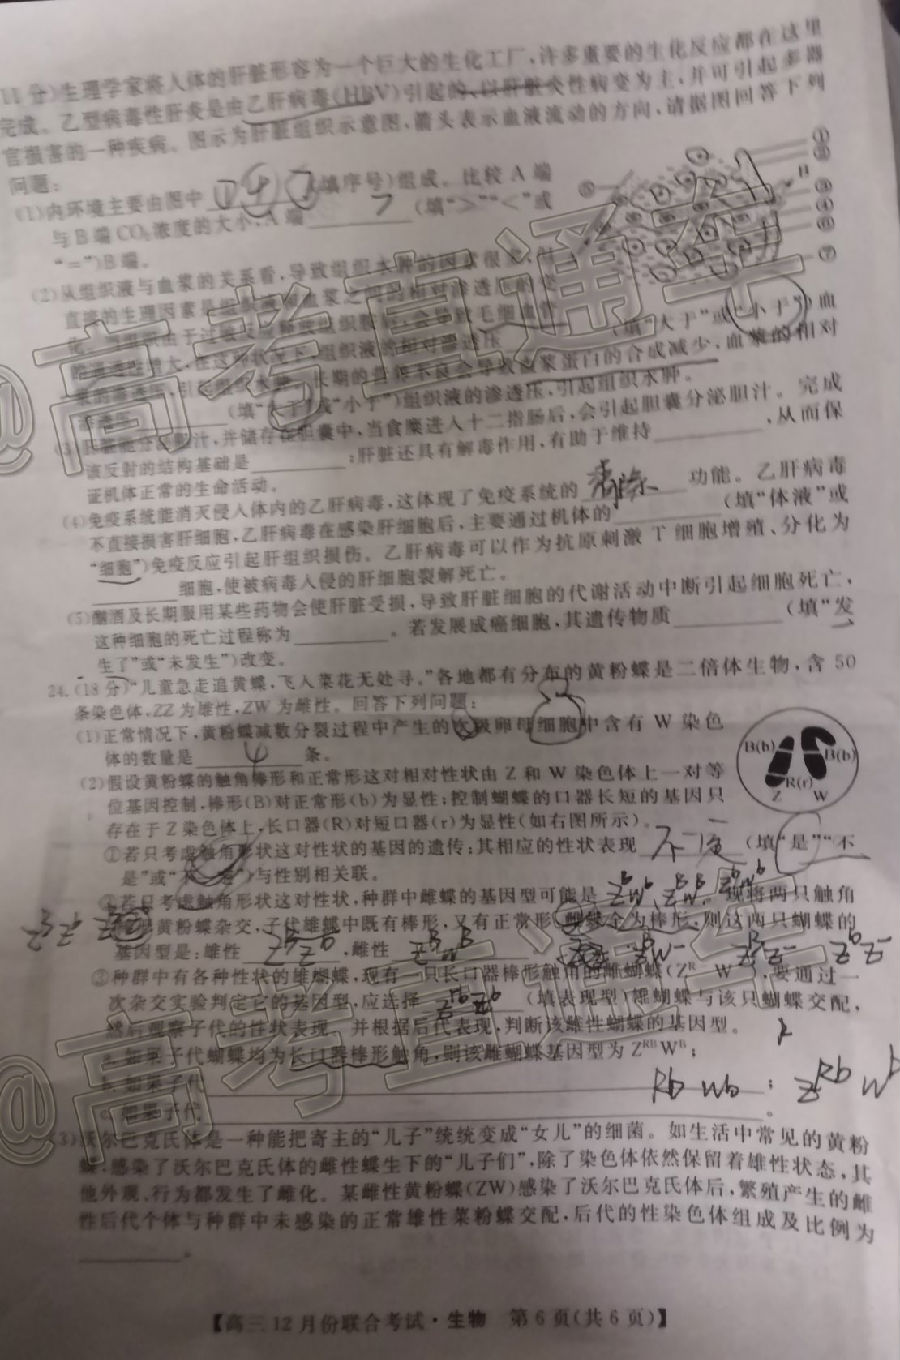 11分)生理学家将人体的肝脏形容为一个巨大的生化工厂,许多重要的生化反应都在这里
完成。乙型病毒性肝炎是由乙肝病毒(HBV)引起的,以肝脏炎性病变为主,并可引起多器
官损害的一种疾病。图示为肝脏组织示意图,箭头表示血液流动的方向,请据图回答下列
问题:
(1)内环境主要由图中(填序号)组成。比较A端
与B端CO₂浓度的大小:A端 > (填“>”“<”或
“=”)B端。
① ② ③ ④ ⑤ ⑥ ⑦
(2)从组织液与血浆的关系看,导致组织水肿的因素很多,但
直接的生理因素是组织液与血浆之间的相对渗透压的变
化。当组织由于过敏,会导致毛细血管
的通透性增大,在这种状况下,组织液的相对渗透压(填“大于”或“小于”)血
浆的渗透压,引起组织水肿。长期的营养不良会导致血浆蛋白的合成减少,血浆的相对
渗透压(填“大于”或“小于”)组织液的渗透压,引起组织水肿。
(3)肝脏能分泌胆汁,并储存在胆囊中,当食糜进入十二指肠后,会引起胆囊分泌胆汁。完成
该反射的结构基础是;肝脏还具有解毒作用,有助于维持,从而保
证机体正常的生命活动。
(4)免疫系统能消灭侵入体内的乙肝病毒,这体现了免疫系统的 清除 功能。乙肝病毒
不直接损害肝细胞,乙肝病毒在感染肝细胞后,主要通过机体的(填“体液”或
“细胞”)免疫反应引起肝组织损伤。乙肝病毒可以作为抗原刺激T细胞增殖、分化为
细胞,使被病毒入侵的肝细胞裂解死亡。
(5)酗酒及长期服用某些药物会使肝脏受损,导致肝脏细胞的代谢活动中断引起细胞死亡,
这种细胞的死亡过程称为。若发展成癌细胞,其遗传物质(填“发
生了”或“未发生”)改变。
24.(18分)“儿童急走追黄蝶,飞入菜花无处寻。”各地都有分布的黄粉蝶是二倍体生物,含50
条染色体,ZZ为雄性,ZW为雌性。回答下列问题:
(1)正常情况下,黄粉蝶减数分裂过程中产生的次级卵母细胞中含有W染色
体的数量是条。
B(b) B(b) R(r) Z W
(2)假设黄粉蝶的触角棒形和正常形这对相对性状由Z和W染色体上一对等
位基因控制,棒形(B)对正常形(b)为显性;控制蝴蝶的口器长短的基因只
存在于Z染色体上,长口器(R)对短口器(r)为显性(如右图所示)。
①若只考虑触角形状这对性状的基因的遗传;其相应的性状表现(填“是”“不
是”或“”)与性别相关联。
②若只考虑触角形状这对性状,种群中雌蝶的基因型可能是。现将两只触角
黄粉蝶杂交,子代雄蝶中既有棒形,又有正常形,雌蝶全为棒形,则这两只蝴蝶的
基因型是:雄性,雌性
③种群中有各种性状的雄蝴蝶,现有一只长口器棒形触角的雌蝴蝶(Zᴿ W),要通过一
次杂交实验判定它的基因型,应选择(填表现型)雄蝴蝶与该只蝴蝶交配,
然后观察子代的性状表现,并根据后代表现,判断该雌性蝴蝶的基因型。
a.如果子代蝴蝶均为长口器棒形触角,则该雌蝴蝶基因型为ZᴿᴮWᴮ;
b.如果子代;
c.如果子代。
(3)沃尔巴克氏体是一种能把寄主的“儿子”统统变成“女儿”的细菌。如生活中常见的黄粉
蝶,感染了沃尔巴克氏体的雌性蝶生下的“儿子们”,除了染色体依然保留着雄性状态,其
他外观、行为都发生了雌化。某雌性黄粉蝶(ZW)感染了沃尔巴克氏体后,繁殖产生的雌
性后代个体与种群中未感染的正常雄性菜粉蝶交配,后代的性染色体组成及比例为
。
【高三12月份联合考试·生物 第6页(共6页)】
@高考直通车
@高考直通车